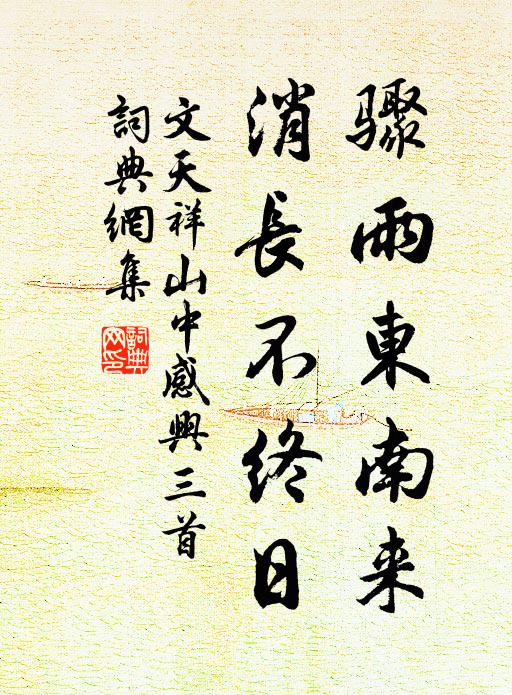 骤雨東南来
消長不终日
文天祥山中感興三首
詞典網集
詞典
网印